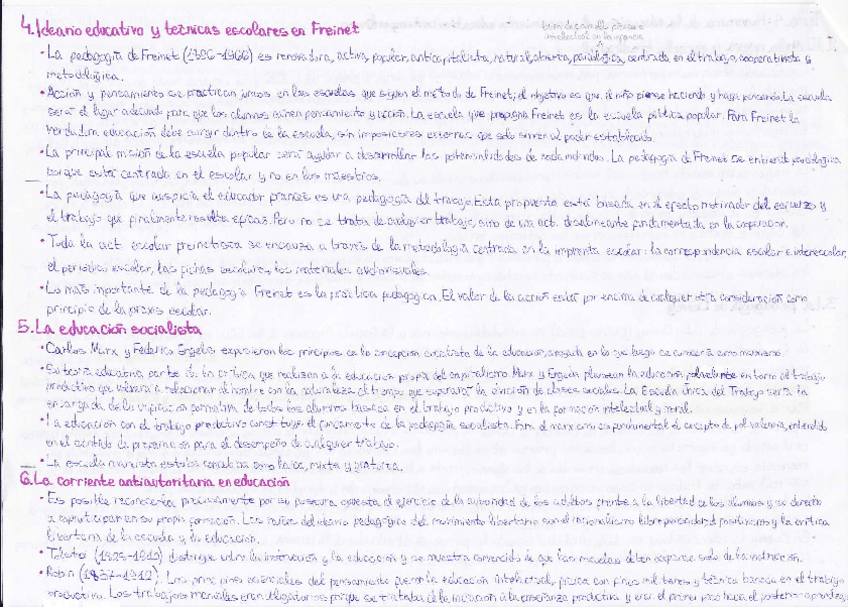 4. Ideario educativo y técnicas escolares en Freinet
intelectual en la infancia
• La pedagogía de Freinet (1896-1966) es renovadora, activa, popular, anticapitalista, natural, abierta, paidológica, centrada en el trabajo, cooperativista y
metodológica.
• Acción y pensamiento se practican juntos en las escuelas que siguen el método de Freinet; el objetivo es que el niño piense haciendo y haga pensando. La escuela
será el lugar adecuado para que los alumnos aúnen pensamiento y acción. La escuela que propugna Freinet es la escuela pública popular. Para Freinet la
verdadera educación debe surgir dentro de la escuela, sin imposiciones externas que solo sirven al poder establecido.
• La principal misión de la escuela popular será ayudar a desarrollar las potencialidades de cada individuo. La pedagogía de Freinet se entiende paidológica
porque está centrada en el escolar y no en los maestros.
• La pedagogía que auspicia el educador francés es una pedagogía del trabajo. Esta propuesta está basada en el efecto motivador del esfuerzo y
el trabajo que finalmente resulta eficaz. Pero no se trata de cualquier trabajo, sino de una act. disciplinante fundamentada en la cooperación.
• Toda la act. escolar freinetista se encauza a través de la metodología centrada en la imprenta escolar: la correspondencia escolar e interescolar,
el periódico escolar, las fichas escolares, los materiales audiovisuales.
• Lo más importante de la pedagogía Freinet es la práctica pedagógica. El valor de la acción está por encima de cualquier otra consideración como
principio de la praxis escolar.
5. La educación socialista
• Carlos Marx y Federico Engels expusieron los principios de la concepción socialista de la educación, apoyada en lo que luego se conocería como marxismo.
• Su teoría educativa parte de la crítica que realizan a la educación propia del capitalismo. Marx y Engels plantean la educación polivalente en torno al trabajo
productivo que volverá a relacionar al hombre con la naturaleza al tiempo que superará la división de clases sociales. La Escuela Única del Trabajo sería la
encargada de la unificación formativa de todos los alumnos basada en el trabajo productivo y en la formación intelectual y moral.
• La educación con el trabajo productivo constituye el fundamento de la pedagogía socialista. Para el marxismo es fundamental el concepto de polivalencia, entendido
en el sentido de preparación para el desempeño de cualquier trabajo.
• La escuela marxista estaba concebida como laica, mixta y gratuita.
6. La corriente antiautoritaria en educación
• Es posible reconocerla precisamente por su postura opuesta al ejercicio de la autoridad de los adultos frente a la libertad de los alumnos y su derecho
a participar en su propia formación. Las raíces del ideario pedagógico del movimiento libertario son el racionalismo librepensador, el positivismo y la crítica
libertaria de la escuela y la educación.
• Tolstoi (1828-1910) distingue entre la instrucción y la educación y se muestra convencido de que las escuelas deben ocuparse solo de la instrucción.
• Robin (1837-1912). Los principios esenciales del pensamiento fueron la educación intelectual, física con fines militares y técnica basada en el trabajo
productivo. Los trabajos manuales eran obligatorios porque se trataba de la iniciación a la enseñanza productiva y era el primer paso hacia el posterior aprendizaje